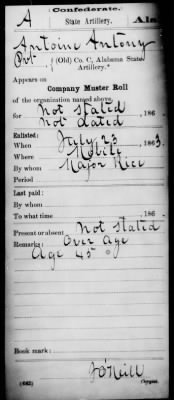 Confederate.
A State Artillery. Ala
Antoine Antony
Pvt., (Old) Co. C, Alabama State Artillery.*
Appears on
Company Muster Roll
of the organization named above,
for Not stated, 186 .
Not dated, 186 .
Enlisted:
When July 23, 1863.
Where Mobile
By whom Major Rice
Period
Last paid:
By whom
To what time , 186 .
Present or absent Not stated
Remarks: Over age
Age 45
Book mark:
J O'Neill
(642) Copyist.